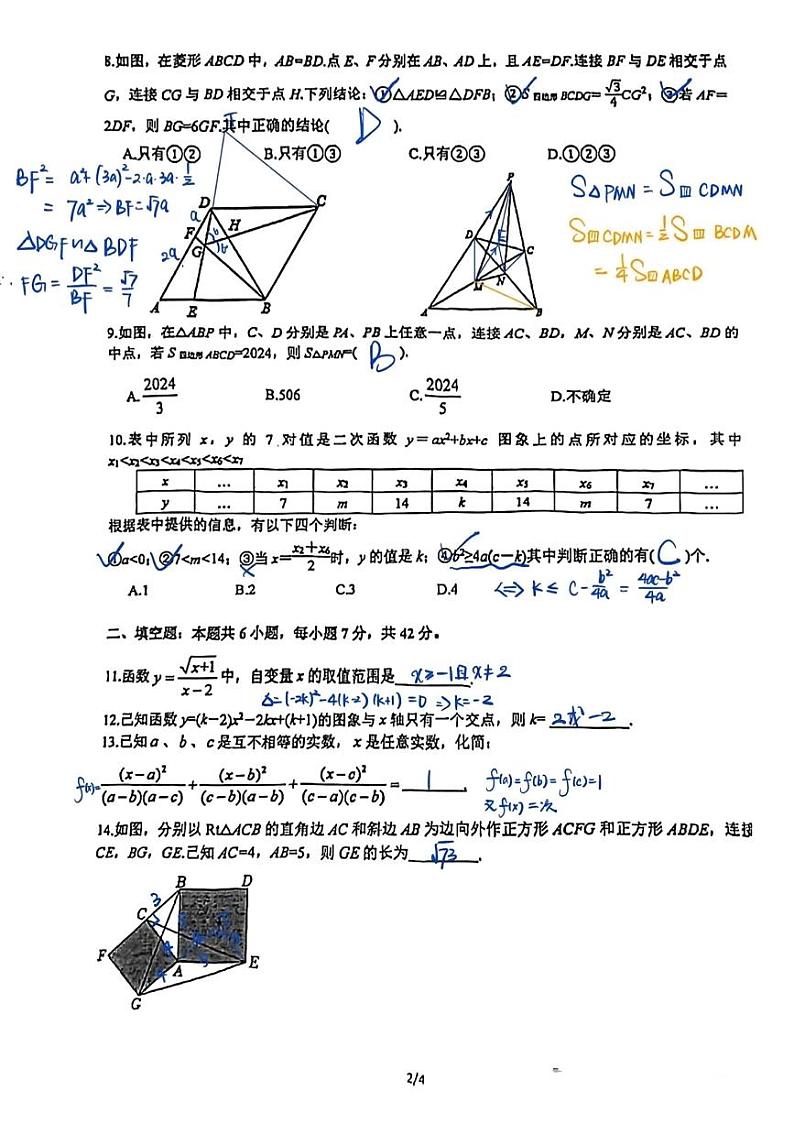 8.如图，在菱形 ABCD 中，AB=BD.点 E、F 分别在 AB、AD 上，且 AE=DF.连接 BF 与 DE 相交于点
G，连接 CG 与 BD 相交于点 H.下列结论：①△AED≌△DFB；②S 四边形 BCDG=√3/4 CG²；③若 AF=
2DF，则 BG=6GF.其中正确的结论( D ).
A.只有①② B.只有①③ C.只有②③ D.①②③
BF² = a²+(3a)²-2·a·3a·1/2
= 7a² => BF=√7a
△DGF∽△BDF
FG = DF²/BF = √7/7
D C F H G A E B
a 2a
P D E C M N A B
S△PMN = S四CDMN
S四CDMN=1/2 S四BCDM
= 1/4 S四ABCD
9.如图，在△ABP 中，C、D 分别是 PA、PB 上任意一点，连接 AC、BD，M、N 分别是 AC、BD 的
中点，若 S 四边形 ABCD=2024，则 S△PMN=( B ).
A.2024/3 B.506 C.2024/5 D.不确定
10.表中所列 x，y 的 7 对值是二次函数 y=ax²+bx+c 图象上的点所对应的坐标，其中
x₁<x₂<x₃<x₄<x₅<x₆<x₇
x … x₁ x₂ x₃ x₄ x₅ x₆ x₇ …
y … 7 m 14 k 14 m 7 …
根据表中提供的信息，有以下四个判断：
①a<0；②7<m<14；③当 x=(x₂+x₆)/2 时，y 的值是 k；④b²≥4a(c−k)其中判断正确的有( C )个.
A.1 B.2 C.3 D.4
<=> k ≤ c - b²/4a = (4ac-b²)/4a
二、填空题：本题共 6 小题，每小题 7 分，共 42 分。
11.函数 y=√(x+1)/(x−2) 中，自变量 x 的取值范围是 x≥-1且x≠2 .
△=(-2k)²-4(k-2)(k+1)=0 => k=-2
12.已知函数 y=(k−2)x²−2kx+(k+1)的图象与 x 轴只有一个交点，则 k= 2或-2 .
13.已知 a、b、c 是互不相等的实数，x 是任意实数，化简：
f(x)= (x−a)²/(a−b)(a−c) + (x−b)²/(c−b)(a−b) + (x−c)²/(c−a)(c−b) = 1 .
f(a)=f(b)=f(c)=1
又f(x)=二次
14.如图，分别以 Rt△ACB 的直角边 AC 和斜边 AB 为边向外作正方形 ACFG 和正方形 ABDE，连接
CE，BG，GE.已知 AC=4，AB=5，则 GE 的长为 √73 .
B D
3 C
F A E
G
2/4